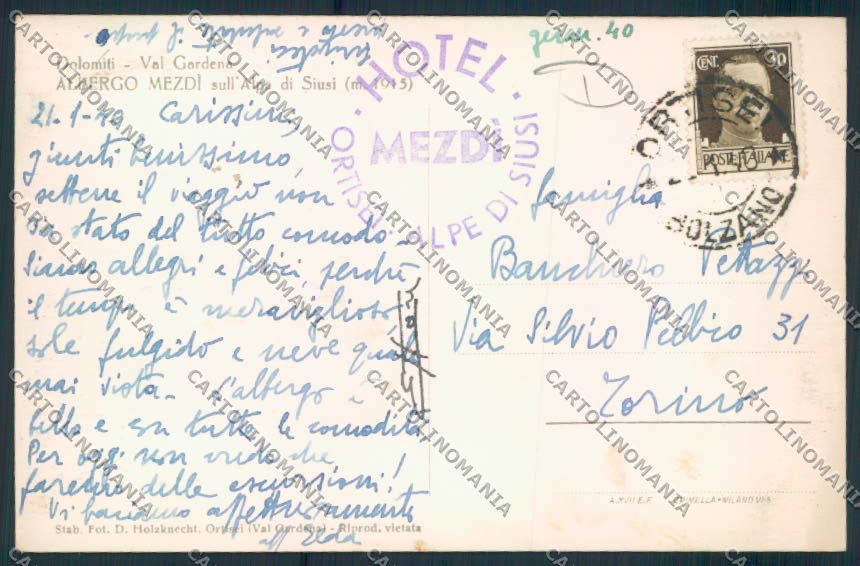 germ. 40
Dolomiti - Val Gardena
ALBERGO MEZDÌ sull'Alpe di Siusi (m. 1915)
HOTEL
MEZDÌ
ORTISEI · ALPE DI SIUSI
CENT. 30
POSTE ITALIANE
ORTISEI
BOLZANO
21-1-40 Carissimi,
giunti benissimo,
sebbene il viaggio non
sia stato del tutto comodo -
Siamo allegri e felici, perchè
il tempo è meraviglioso
sole fulgido e neve quale
mai vista - L'albergo è
bello e con tutte le comodità
Per oggi non credo che
faremo delle escursioni!
Vi baciamo affettuosamente
aff Elda
famiglia
Banchiero Pettazzi
Via Silvio Pellico 31
Torino
A. XVII E.F.
MILANO
Stab. Fot. D. Holzknecht, Ortisei (Val Gardena) - Riprod. vietata
CARTOLINOMANIA